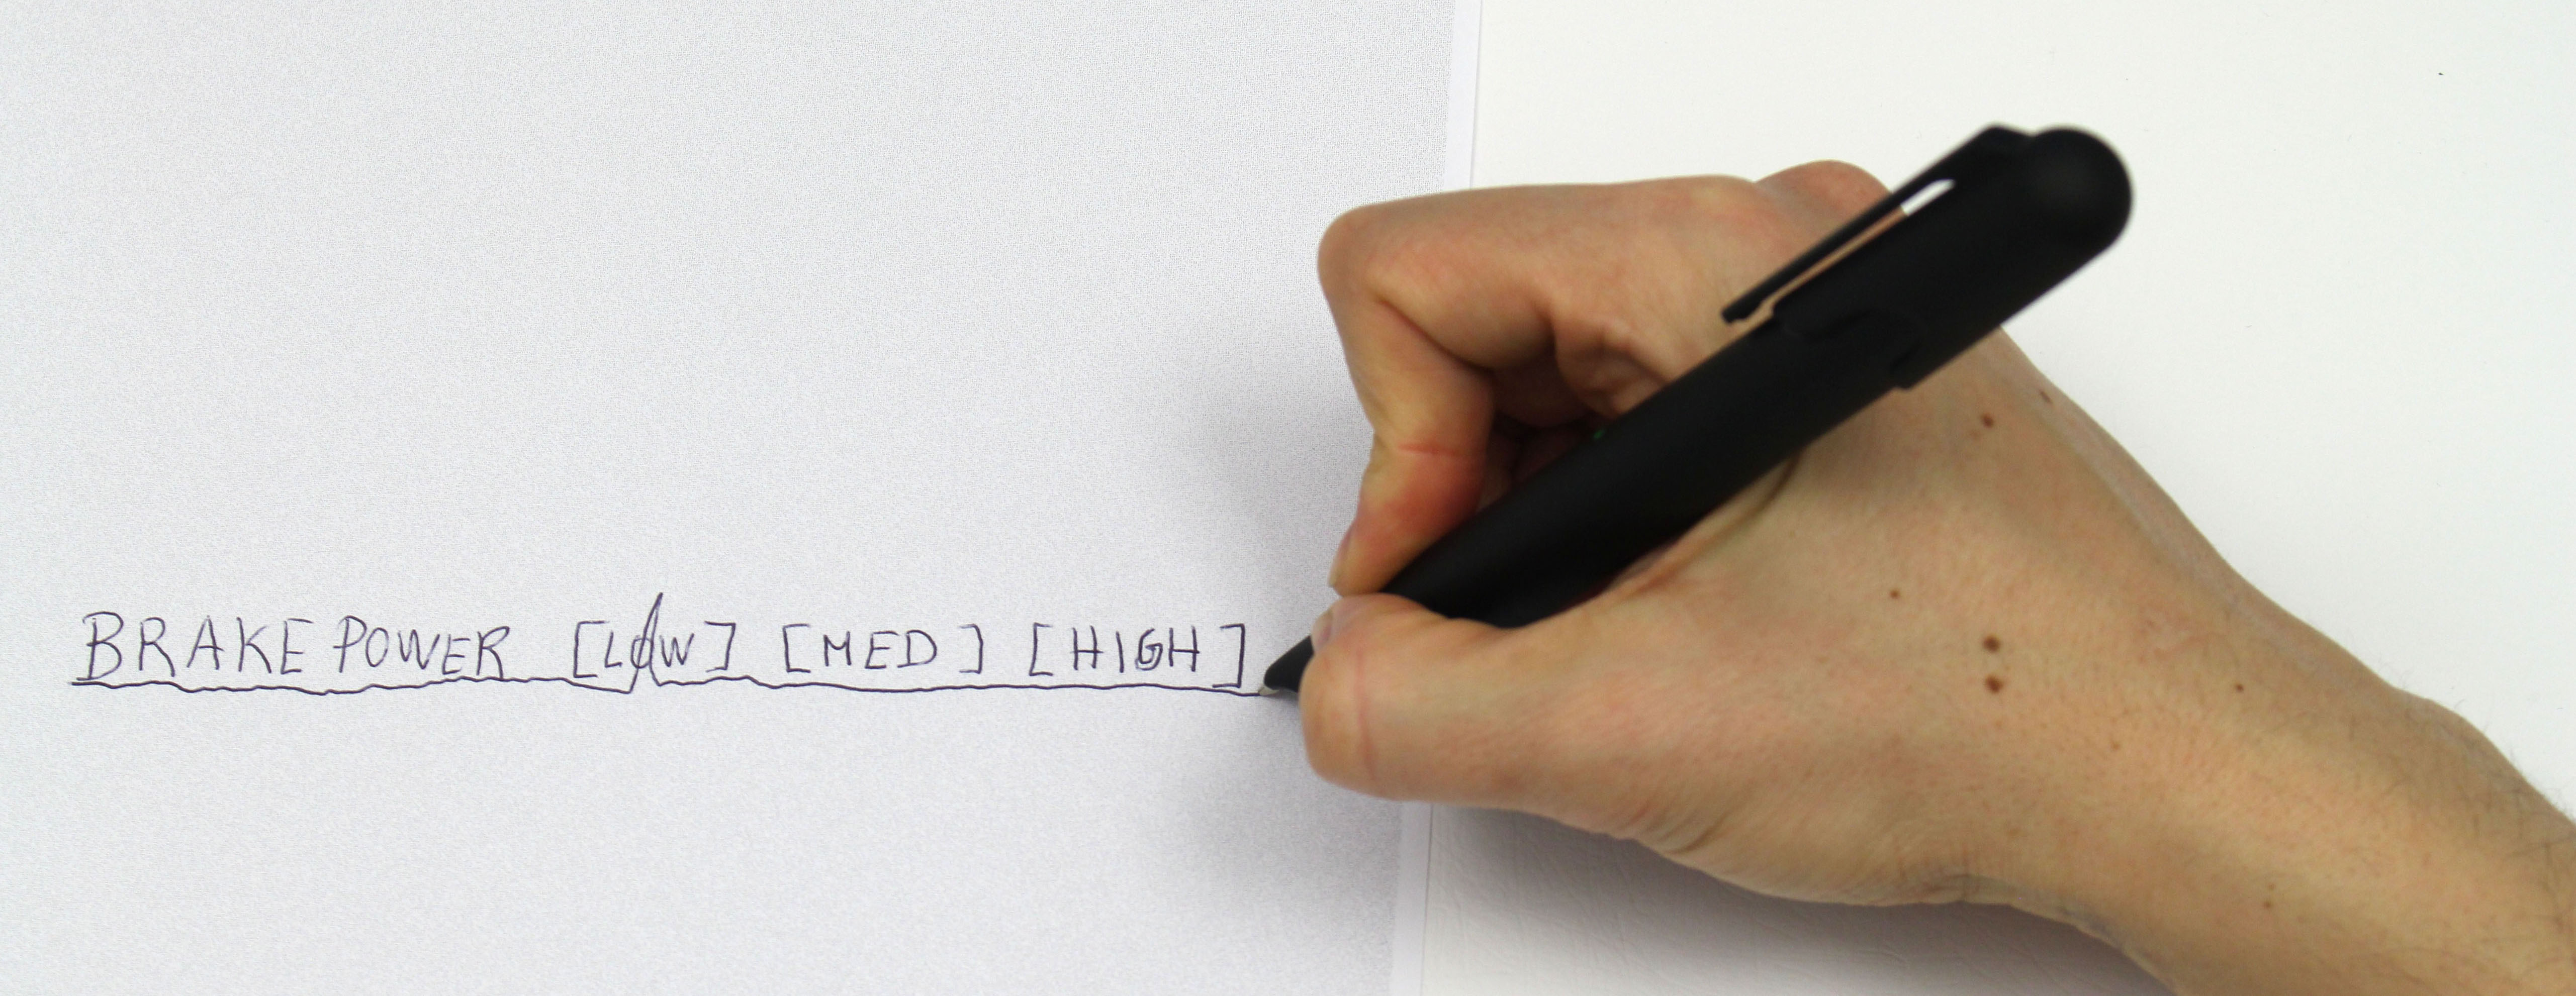 BRAKE POWER [LOW] [MED] [HIGH]